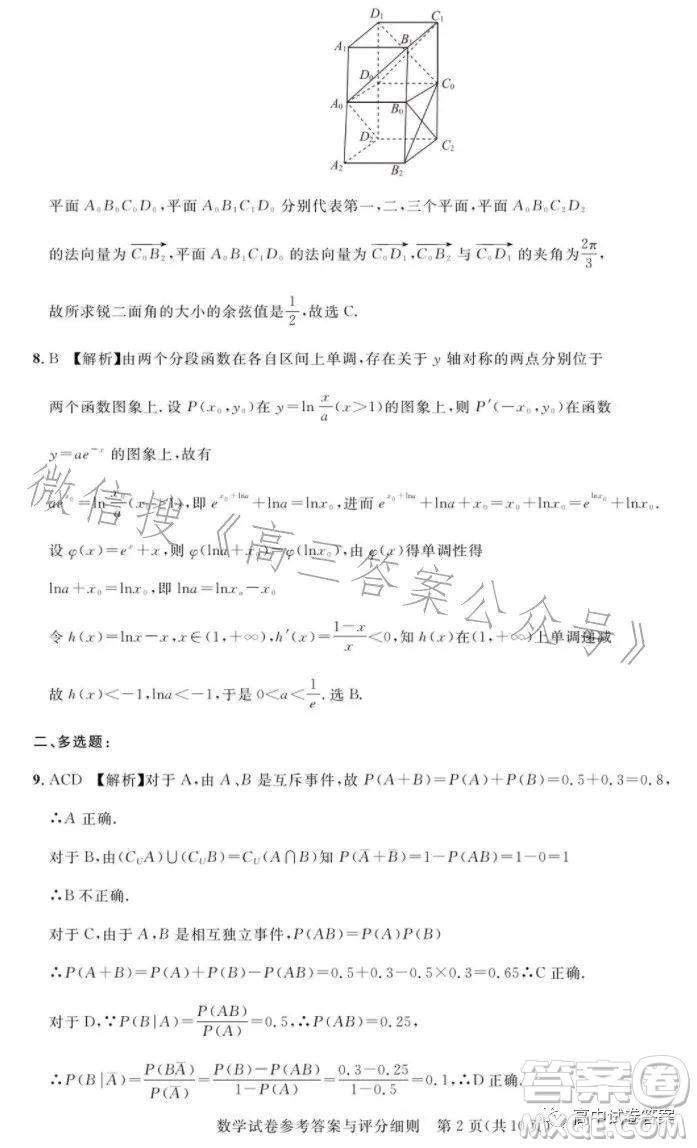 D₁ C₁
A₁ B₁
D₀ C₀
A₀ B₀
D₂ C₂
A₂ B₂
平面 A₀B₀C₀D₀,平面 A₀B₁C₁D₀ 分别代表第一,二,三个平面,平面 A₀B₀C₂D₂
的法向量为 $\overrightarrow{C_0B_2}$,平面 A₀B₁C₁D₀ 的法向量为 $\overrightarrow{C_0D_1}$,$\overrightarrow{C_0B_2}$ 与 $\overrightarrow{C_0D_1}$ 的夹角为 $\frac{2π}{3}$,
故所求锐二面角的大小的余弦值是 $\frac{1}{2}$,故选 C.
8. B 【解析】由两个分段函数在各自区间上单调,存在关于 y 轴对称的两点分别位于
两个函数图象上.设 P(x₀,y₀)在 y=ln $\frac{x}{a}$(x>1)的图象上,则 P′(−x₀,y₀)在函数
y=ae⁻ˣ 的图象上,故有
$ae^{x_0}=\ln\frac{x_0}{a}$(x>1),即 $e^{x_0+lna}$+lna=lnx₀,进而 $e^{x_0+lna}$+lna+x₀=x₀+lnx₀=$e^{lnx_0}$+lnx₀.
设 φ(x)=eˣ+x,则 φ(lna+x₀)=φ(lnx₀),由 φ(x)得单调性得
lna+x₀=lnx₀,即 lna=lnx₀−x₀
令 h(x)=lnx−x,x∈(1,+∞),h′(x)=$\frac{1-x}{x}$<0,知 h(x)在(1,+∞)上单调递减
故 h(x)<−1,lna<−1,于是 0<a<$\frac{1}{e}$.选 B.
二、多选题:
9. ACD 【解析】对于 A,由 A、B 是互斥事件,故 P(A+B)=P(A)+P(B)=0.5+0.3=0.8,
∴A 正确.
对于 B,由(C_UA)∪(C_UB)=C_U(A∩B)知 P($\overline{A}$+$\overline{B}$)=1−P(AB)=1−0=1
∴B 不正确.
对于 C,由于 A,B 是相互独立事件,P(AB)=P(A)P(B)
∴P(A+B)=P(A)+P(B)−P(AB)=0.5+0.3−0.5×0.3=0.65∴C 正确.
对于 D,∵P(B|A)=$\frac{P(AB)}{P(A)}$=0.5,∴P(AB)=0.25,
∴P(B|$\overline{A}$)=$\frac{P(B\overline{A})}{P(\overline{A})}$=$\frac{P(B)-P(AB)}{1-P(A)}$=$\frac{0.3-0.25}{1-0.5}$=0.1,∴D 正确.
数学试卷参考答案与评分细则 第 2 页(共 10 页)
微信搜《高三答案公众号》
答案圈
MXQE.COM
高中试卷答案